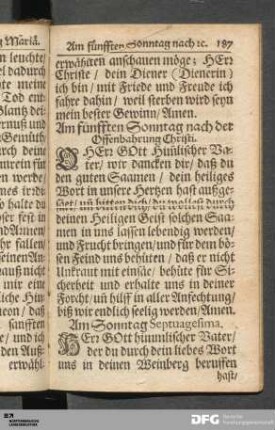 g Mariä.
n leuchte/
el dadurch
hte meine
Tod ent-
Glantz de-
ernuß und
Gemüth
urch dein
nrein für
n werde/
so halte du
oser fest in
ndAmen/
hr fallen/
einen An-
hauß nicht
mir ein
Am fünfften Sonntag nach ꝛc. 187
erwählten anschauen möge; HErr
Christe / dein Diener (Dienerin)
ich bin / mit Friede und Freude ich
fahre dahin / weil sterben wird seyn
mein bester Gewinn / Amen.
Am fünfften Sonntag nach der
Offenbahrung Christi.
O HErr GOtt Him̃lischer Va-
ter / wir dancken dir / daß du
den guten Saamen / dein heiliges
Wort in unsere Hertzen hast außge-
säet / uñ bitten dich / du wollest durch
deinen Heiligen Geist solchen Saa-
men in uns lassen lebendig werden /
und Frucht bringen / und für dem bö-
sen Feind uns behüten / daß er nicht
Unkraut mit einsäe / behüte für Si-
cherheit und erhalte uns in deiner
Forcht / uñ hilff in aller Anfechtung /
biß wir endlich seelig werden / Amen.
Am Sonntag Septuagesima.
HErr GOtt himmlischer Vater /
der du durch dein liebes Wort
uns in deinen Weinberg beruffen
hast /
sanfften
/ und ich
den Auß-
erwähl-
DFG